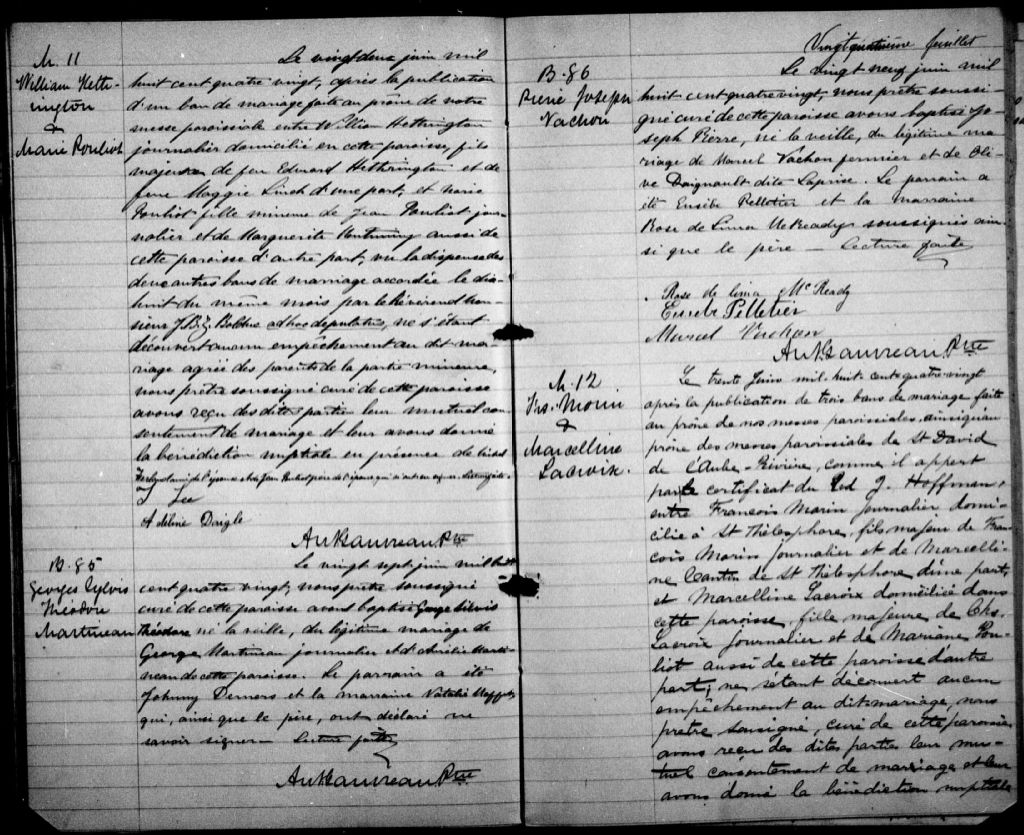 M. 11
William Heth-
ington
&
Marie Pouliot
Le vingt deux juin mil
huit cent quatre vingt, après la publication
d'un ban de mariage faite au prône de notre
messe paroissiale entre William Hethrington
journalier domicilié en cette paroisse, fils
majeur de feu Edward Hethrington et de
feue Maggie Linch d'une part, et Marie
Pouliot fille mineure de Jean Pouliot jour-
nalier et de Marguerite aussi de
cette paroisse d'autre part, vu la dispense des
deux autres bans de mariage accordée le dix-
huit du même mois par le Révérend Mon-
sieur J.B.Z. Bolduc ad hoc deputatus, ne s'étant
découvert aucun empêchement au dit ma-
riage agréé des parents de la partie mineure,
nous prêtre soussigné curé de cette paroisse
avons reçu des dites parties leur mutuel con-
sentement de mariage et leur avons donné
la bénédiction nuptiale en présence de
de l'épouse qui
J Lee
Adeline Daigle
B. 85
Georges Sylvis
Théodore
Martineau
Le vingt sept juin mil huit
cent quatre vingt, nous prêtre soussigné
curé de cette paroisse avons baptisé George Silvis
Théodore né la veille, du légitime mariage de
George Martineau journalier et d'Aurélie Marti-
neau de cette paroisse. Le parrain a été
Johnny Demers et la marraine Natalie
qui, ainsi que le père, ont déclaré ne
savoir signer — Lecture faite
Vingt quatrième feuillet
B. 86
Pierre Joseph
Vachon
Le vingt neuf juin mil
huit cent quatre vingt, nous prêtre soussi-
gné curé de cette paroisse avons baptisé Jo-
seph Pierre, né la veille, du légitime ma-
riage de Marcel Vachon fermier et de Oli-
ve Daignault dite Laprise. Le parrain a
été Eusèbe Pelletier et la marraine
Rose de Lima McReady soussignés ain-
si que le père — Lecture faite
Rose de lima McReady
Euseb Pelletier
Marcel Vachon
M. 12
Frs. Morin
&
Marcelline
Lacroix.
Le trente Juin mil huit cent quatre-vingt
après la publication de trois bans de mariage faite
au prône de nos messes paroissiales, ainsi qu'au
prône des messes paroissiales de St David
de l'Aube-Rivière, comme il appert
par le certificat du Rvd J. Hoffman,
entre Francois Morin journalier domi-
cilié à St Thélesphore, fils majeur de Fran-
cois Morin journalier et de Marcelli-
ne Cantin de St Thélesphore d'une part,
et Marcelline Lacroix domiciliée dans
cette paroisse, fille majeure de Chs.
Lacroix journalier et de Mariane Pou-
liot aussi de cette paroisse d'autre
part; ne s'étant découvert aucun
empêchement au dit mariage, nous
prêtre soussigné, curé de cette paroisse
avons reçu des dites parties leur mu-
tuel consentement de mariage et leur
avons donné la bénédiction nuptiale